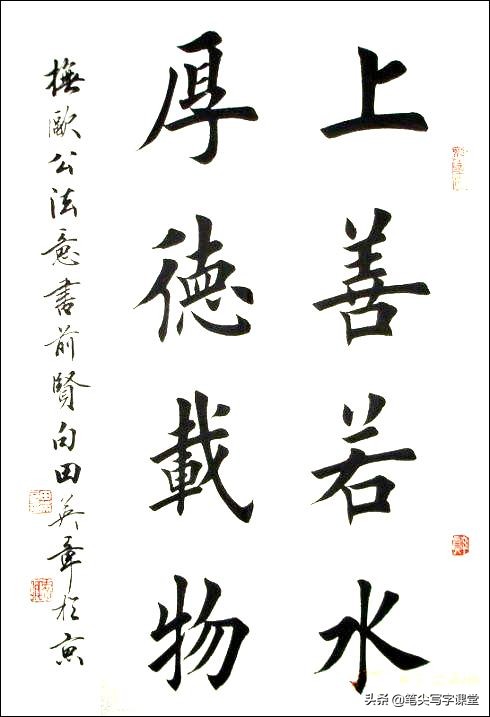 上善若水
厚德載物
橅歐公法意書前賢句田英章於京
头条@笔头写字课堂